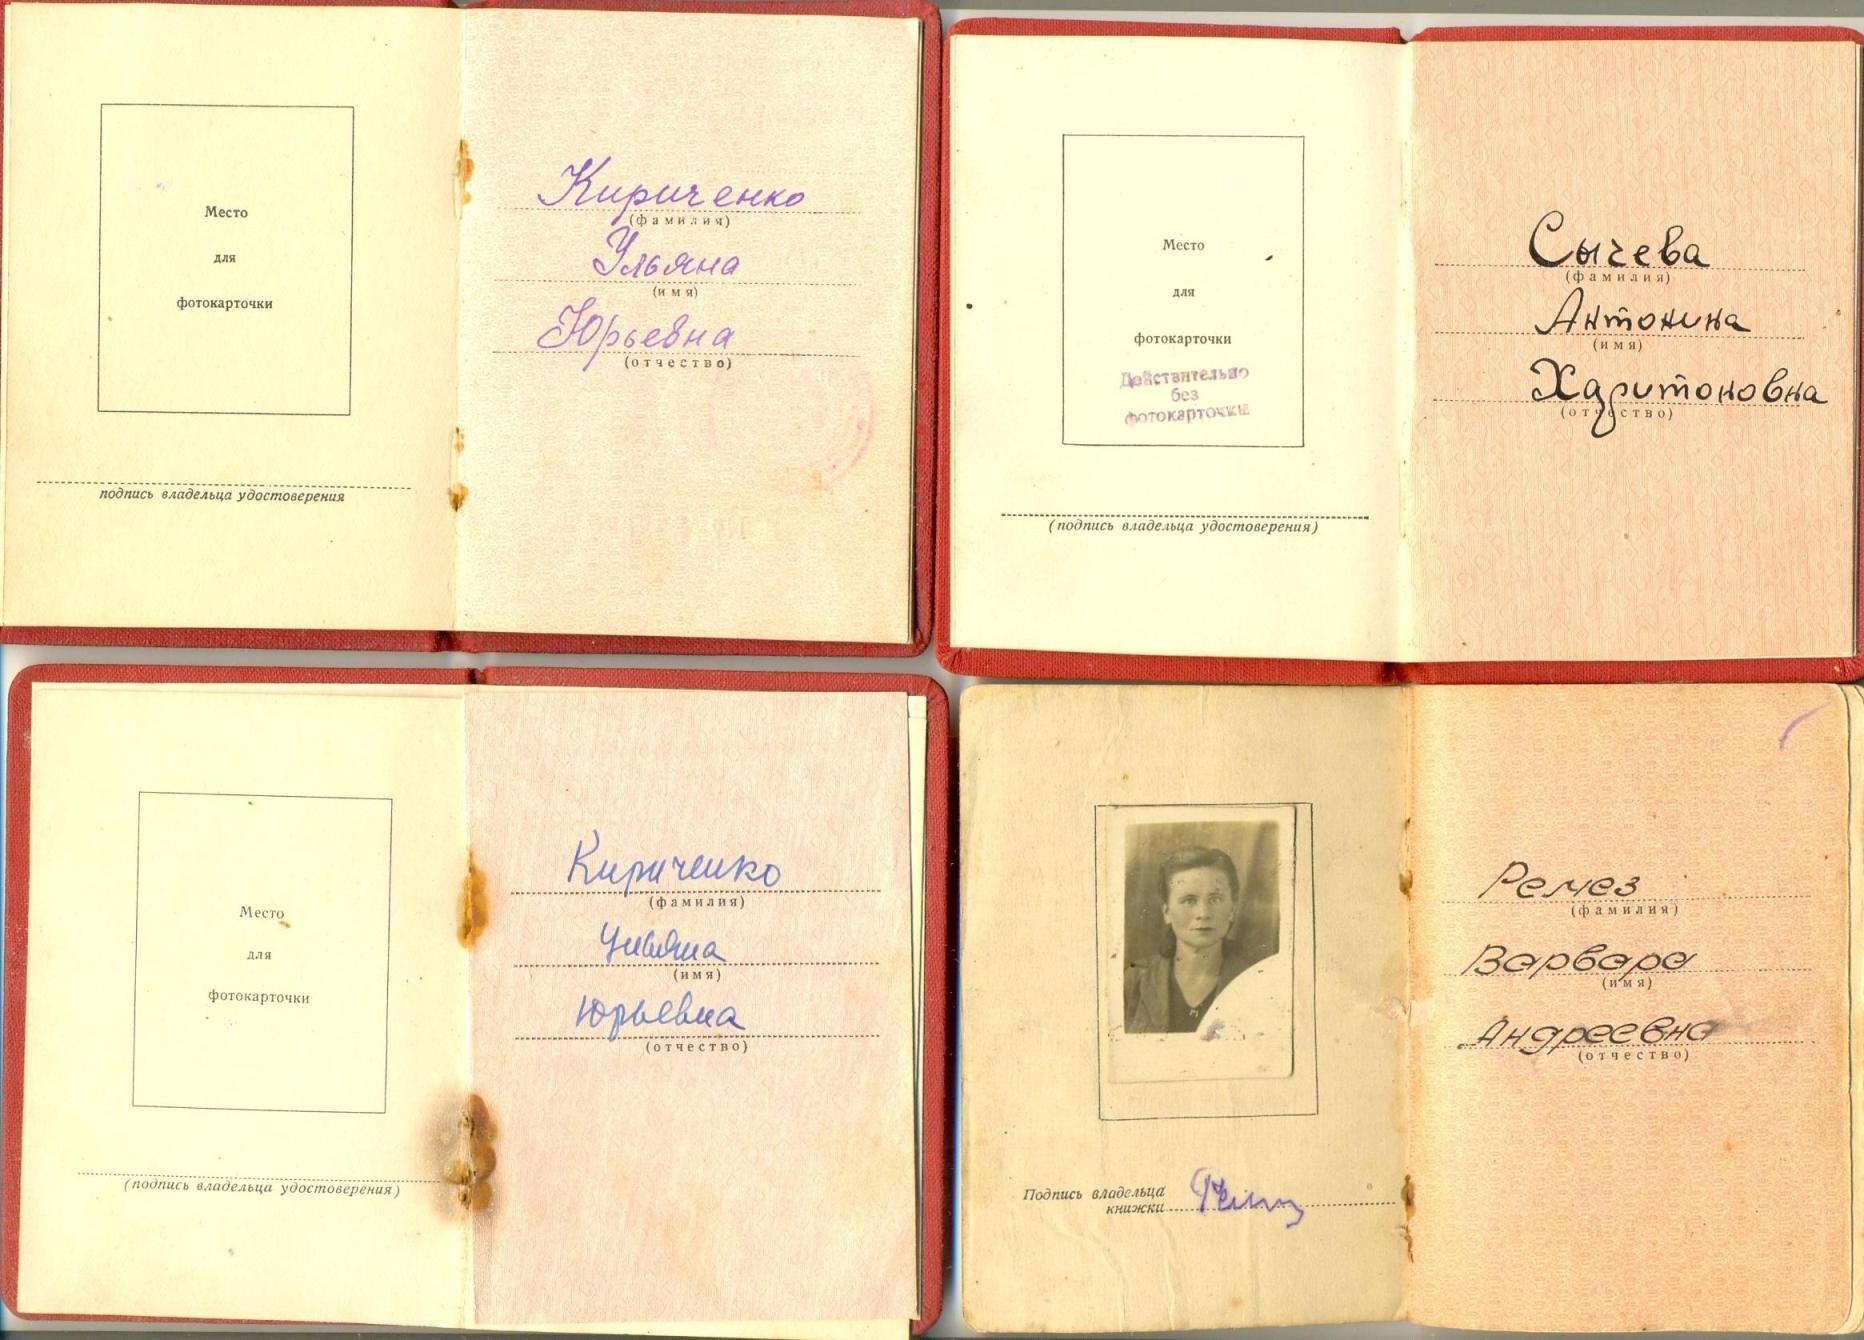 Место
для
фотокарточки
подпись владельца удостоверения
Кириченко
(фамилия)
Ульяна
(имя)
Юрьевна
(отчество)
Место
для
фотокарточки
Действительно
без
фотокарточки
(подпись владельца удостоверения)
Сычева
(фамилия)
Антонина
(имя)
Харитоновна
(отчество)
Место
для
фотокарточки
(подпись владельца удостоверения)
Кириченко
(фамилия)
Ульяна
(имя)
Юрьевна
(отчество)
Подпись владельца
книжки
Ремез
(фамилия)
Варвара
(имя)
Андреевна
(отчество)